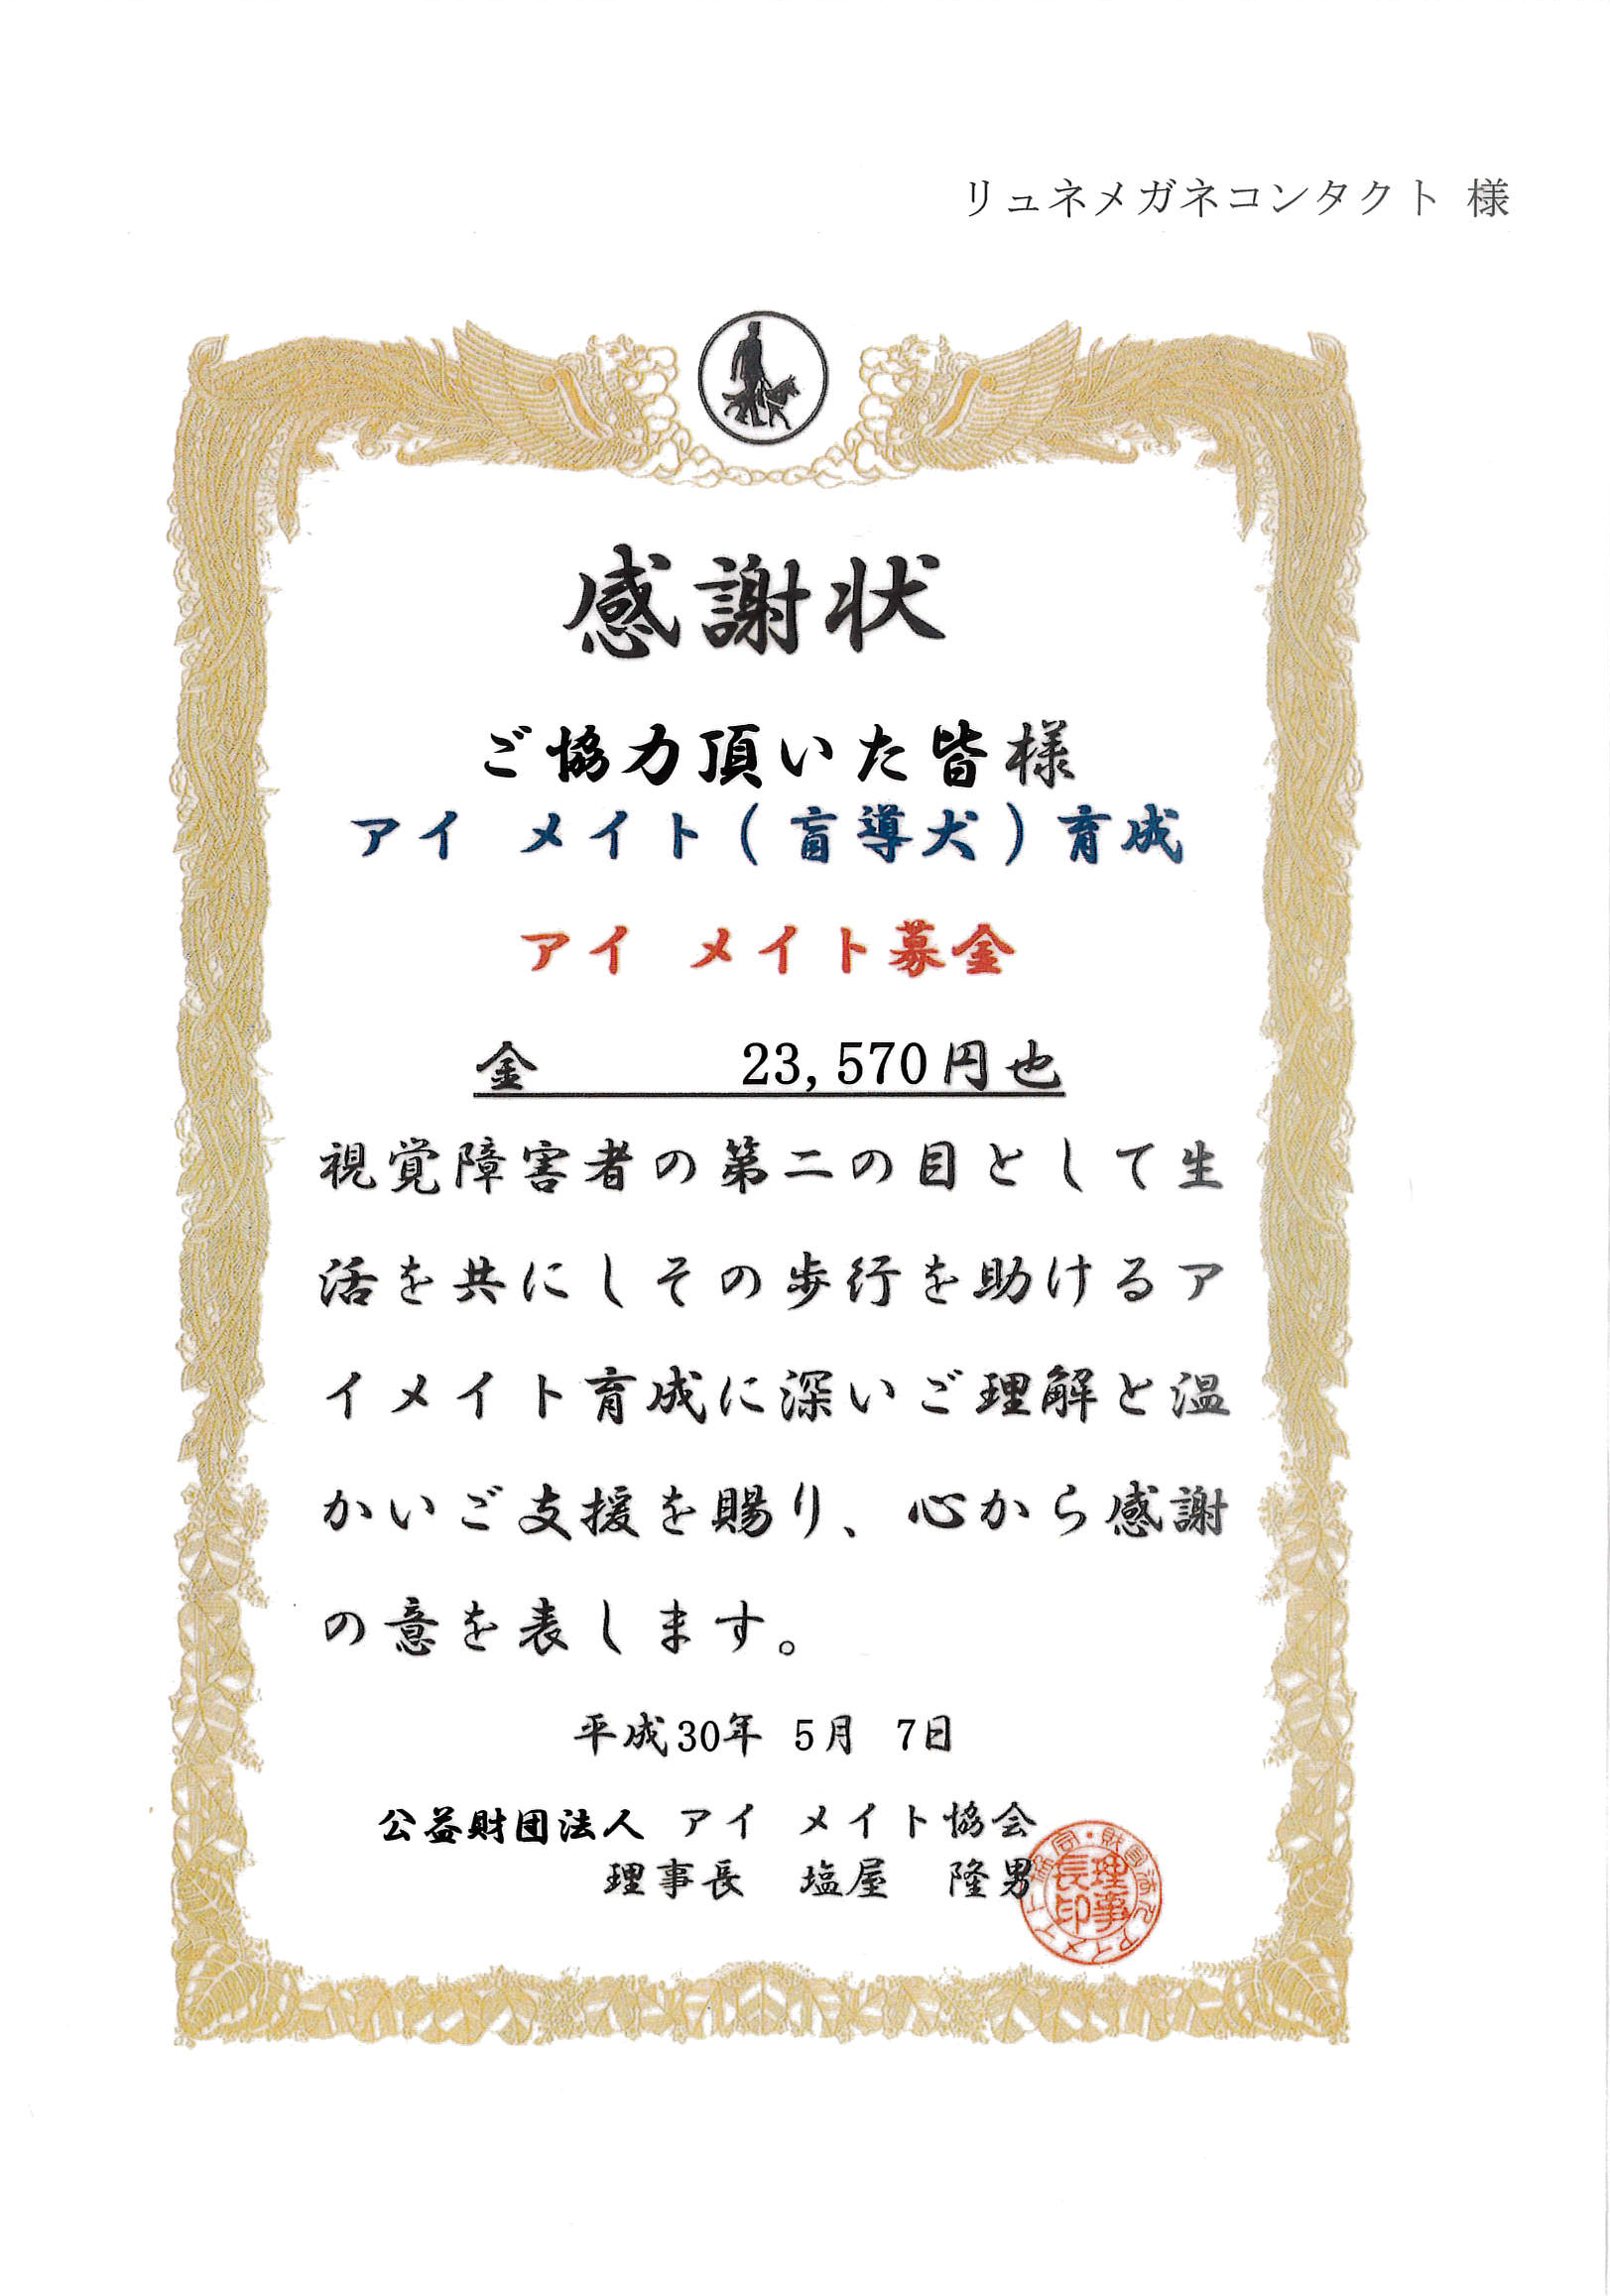 リュネメガネコンタクト 様
感謝状
ご協力頂いた皆様
アイ メイト(盲導犬)育成
アイ メイト募金
金 23,570円也
視覚障害者の第二の目として生
活を共にしその歩行を助けるア
イメイト育成に深いご理解と温
かいご支援を賜り、心から感謝
の意を表します。
平成30年 5月 7日
公益財団法人 アイ メイト協会
理事長 塩屋 隆男
理事長印